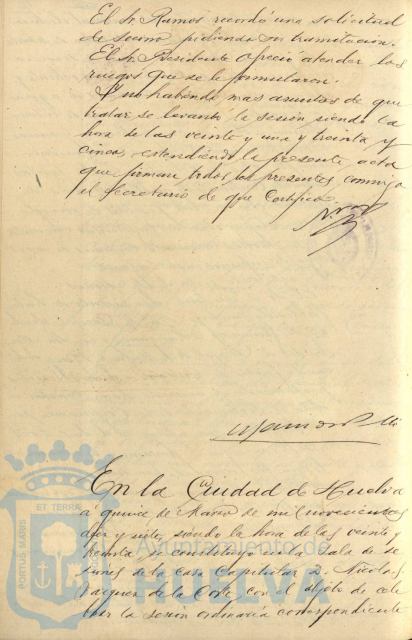 El Sr. Ramos recordó una solicitud
de socorro pidiendo su tramitacion.
El Sr. Presidente ofreció atender los
ruegos que se le formularon.
Y no habiendo mas asuntos de que
tratar se levantó la sesión siendo la
hora de las veinte y una y treinta y
cinco, estendiendo la presente acta
que firman todos los presentes conmigo
el Secretario de que Certifico.
En la Ciudad de Huelva
a quince de Marzo de mil novecientos
diez y siete, siendo la hora de las veinte y
treinta, se constituyó en la Sala de se
siones de la Casa Capitular D. Nicolas
Vazquez de la Corte, con el objeto de cele
brar la sesión ordinaria correspondiente
PORTUS MARIS
ET TERRÆ
Ayuntamiento de
HUELVA